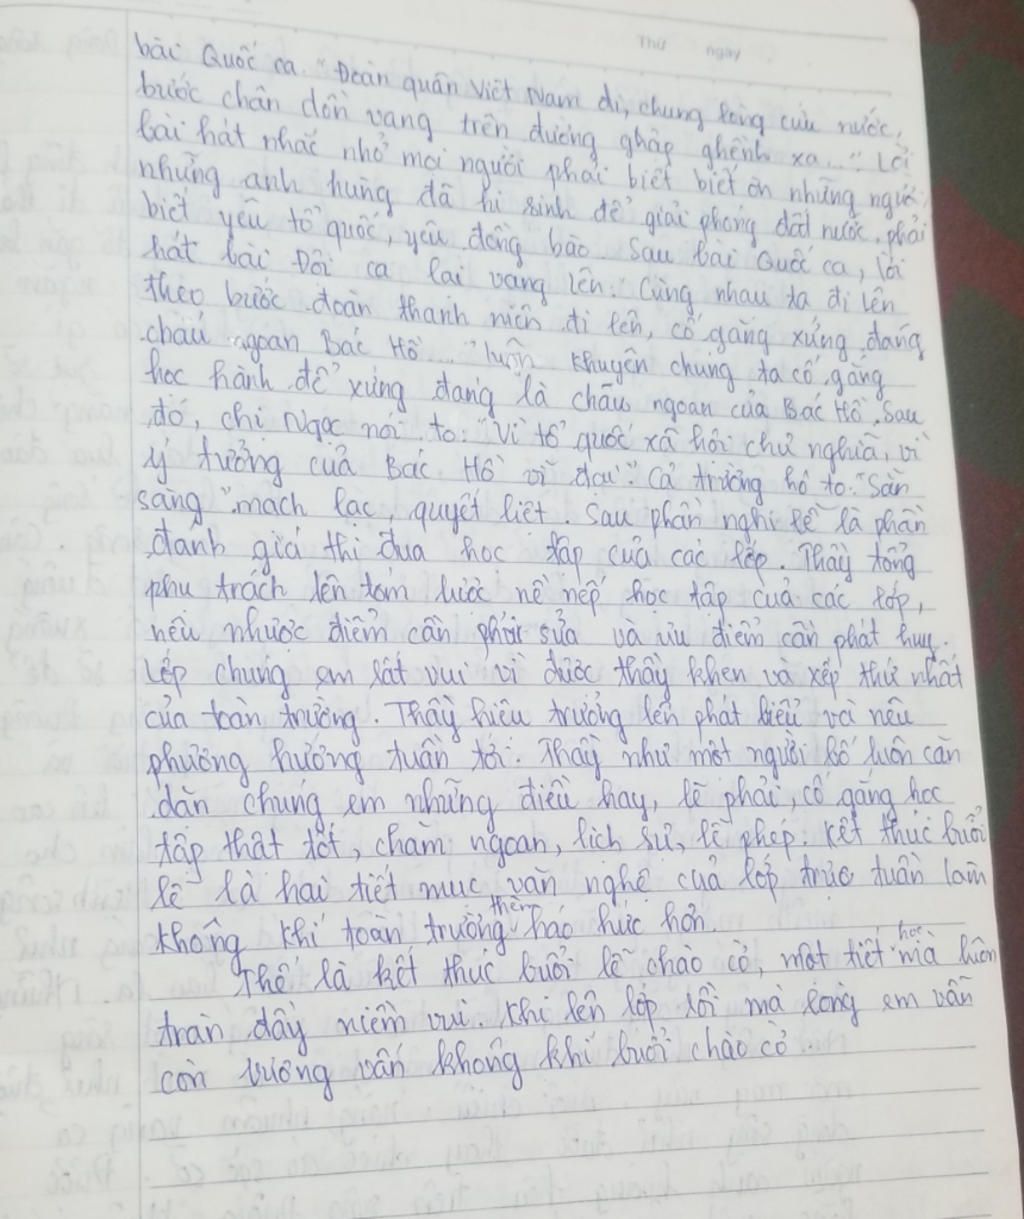 Thứ ngày
bài Quốc ca. "Đoàn quân Việt Nam đi, chung lòng cứu nước,
bước chân dồn vang trên đường ghập ghềnh xa..." Lời
bài hát nhắc nhở mọi người phải biết biết ơn những người,
những anh hùng đã hi sinh để giải phóng đất nước, phải
biết yêu tổ quốc, yêu đồng bào. Sau bài Quốc ca, lời
hát bài Đội ca lại vang lên. Cùng nhau ta đi lên
theo bước đoàn thanh niên đi lên, cố gắng xứng đáng
cháu ngoan Bác Hồ..." luôn khuyên chúng ta cố gắng
học hành để xứng đáng là cháu ngoan của Bác Hồ. Sau
đó, chị Ngọc nói to: "Vì tổ quốc xã hội chủ nghĩa, vì
lý tưởng của Bác Hồ vĩ đại" Cả trường hô to: "Sẵn
sàng" mạch lạc, quyết liệt. Sau phần nghi lễ là phần
đánh giá thi đua học tập của các lớp. Thầy tổng
phụ trách lên tóm lược nề nếp học tập của các lớp,
nêu nhược điểm cần phải sửa và ưu điểm cần phát huy.
Lớp chúng em rất vui vì được thầy khen và xếp thứ nhất
của toàn trường. Thầy hiệu trưởng lên phát biểu và nêu
phương hướng tuần tới. Thầy như một người bố luôn căn
dặn chúng em những điều hay, lẽ phải, cố gắng học
tập thật tốt, chăm ngoan, lịch sự, lễ phép. Kết thúc buổi
lễ là hai tiết mục văn nghệ của lớp trực tuần làm
không khí toàn trường thêm háo hức hơn.
Thế là kết thúc buổi lễ chào cờ, một tiết học mà luôn
tràn đầy niềm vui. Khi lên lớp rồi mà lòng em vẫn
còn vương vấn không khí buổi chào cờ